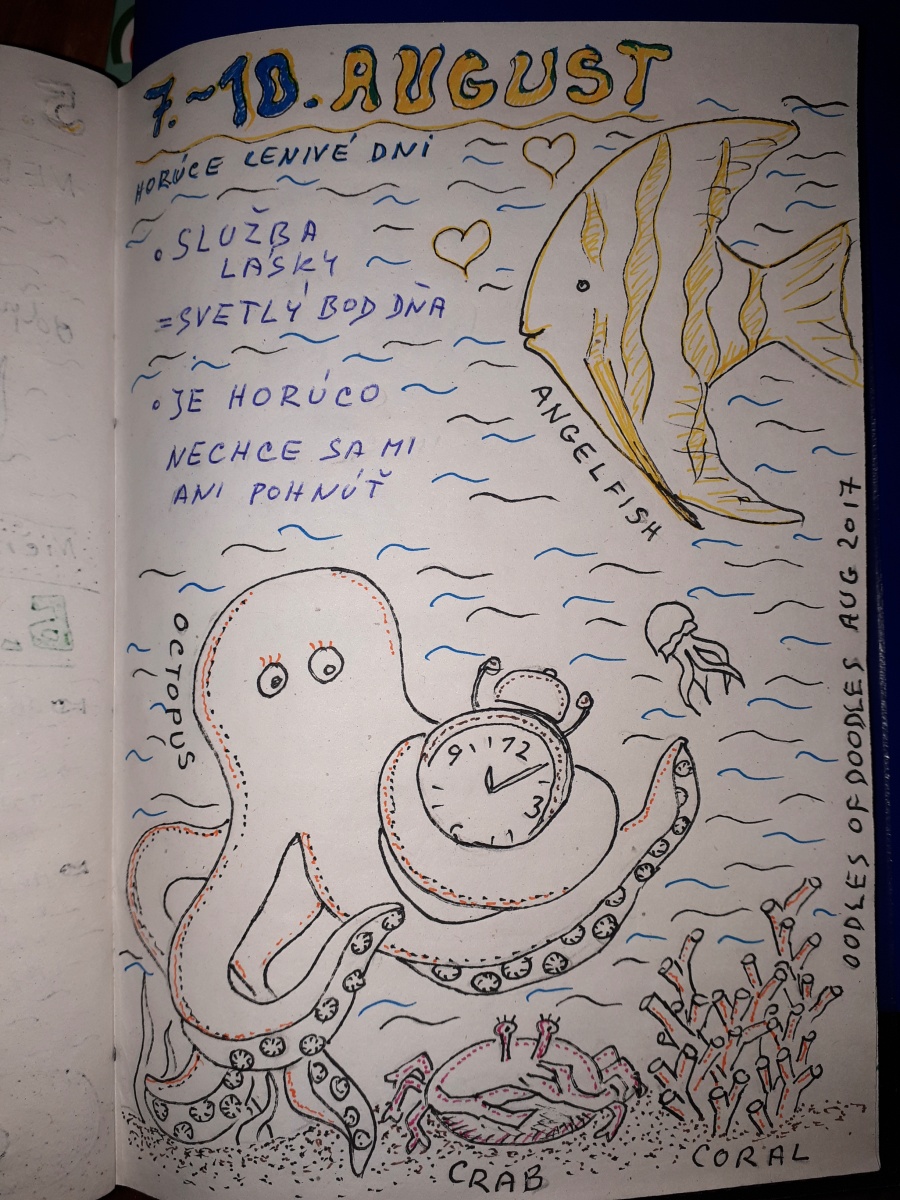 7.~10. AUGUST
HORÚCE LENIVÉ DNI
• SLUŽBA
LÁSKY
= SVETLÝ BOD DŇA
• JE HORÚCO
NECHCE SA MI
ANI POHNÚŤ
ANGELFISH
OODLES OF DOODLES AUG 2017
OCTOPUS
9 12
3
6
CRAB
CORAL